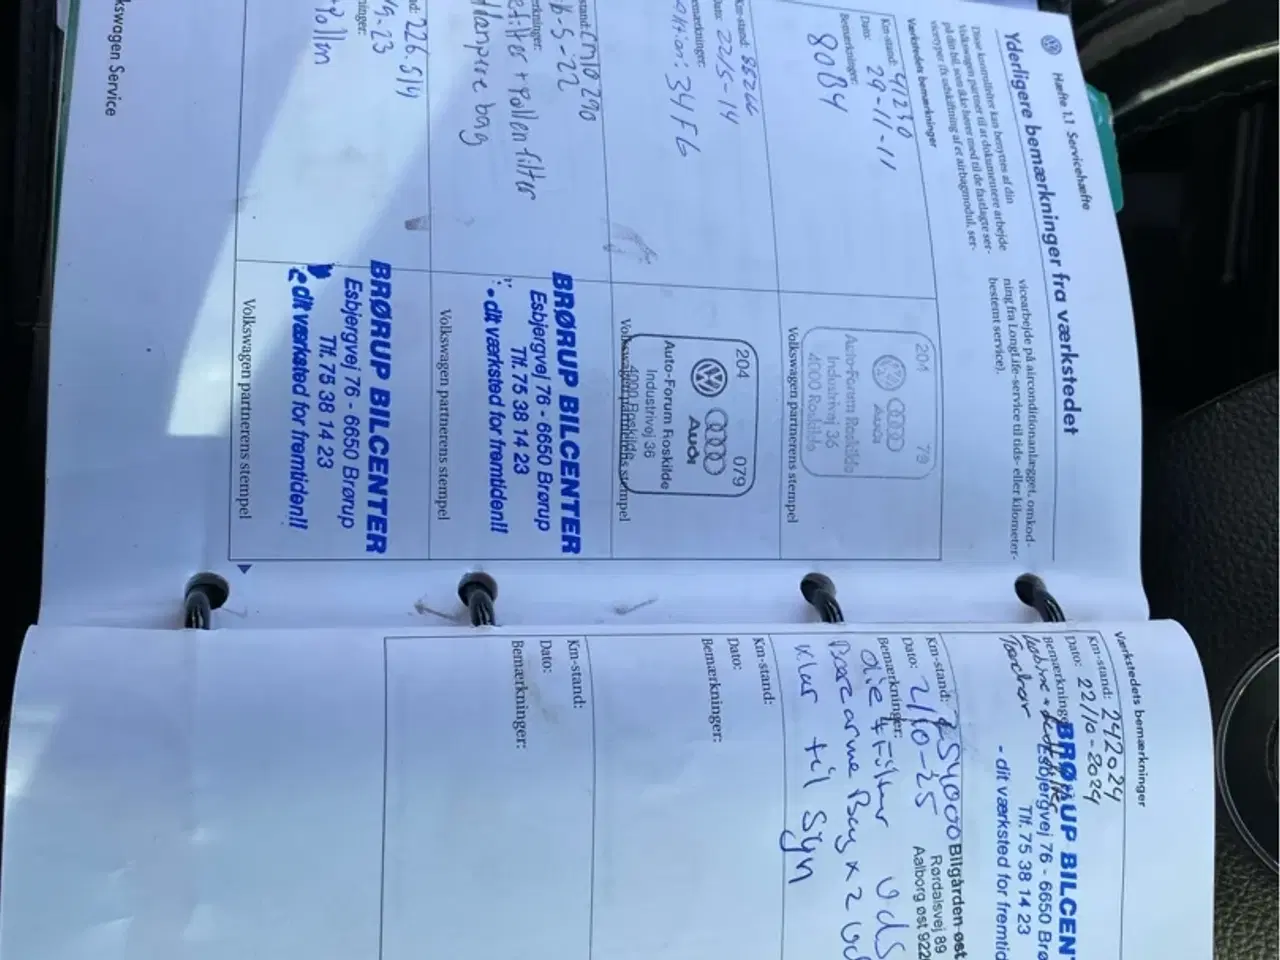 Hæfte 1.1 Servicehæfte
Yderligere bemærkninger fra værkstedet
Disse kontrolfelter kan benyttes af din
Volkswagen partner til at dokumentere arbejde
på din bil, som ikke hører med til de fastlagte ser-
viceryper (fx udskiftning af et airbagmodul, ser-
vicearbejde på airconditionanlægget, omkod-
ning fra LongLife-service til tids- eller kilometer-
bestemt service).
Værkstedets bemærkninger
Km-stand: 41230
Dato: 29-11-11
Bemærkninger:
8084
204 79
Audi
Auto-Forum Roskilde
Industrivej 36
4000 Roskilde
Volkswagen partnerens stempel
Km-stand: 85266
Dato: 22/5-14
Bemærkninger:
Aktion: 34F6
204 079
Audi
Auto-Forum Roskilde
Industrivej 36
4000 Roskilde
Volkswagen partnerens stempel
stand:
-5-22
ærkninger:
filter + pollenfilter
bag
BRØRUP BILCENTER
Esbjergvej 76 - 6650 Brørup
Tlf. 75 38 14 23
- dit værksted for fremtiden!!
Volkswagen partnerens stempel
nd: 226.514
23
ninger:
pollen
BRØRUP BILCENTER
Esbjergvej 76 - 6650 Brørup
Tlf. 75 38 14 23
- dit værksted for fremtiden!!
Volkswagen partnerens stempel
kswagen Service
Værkstedets bemærkninger
Km-stand: 242024
Dato: 22/10-2024
Bemærkninger:
BRØRUP BILCENT
Esbjergvej 76 - 6650 Brø
Tlf. 75 38 14 23
- dit værksted for fremtid
Km-stand: 254000
Dato: 2/10-25
Bemærkninger:
olie + Filter Uds
Bærearme Bag x 2 Ud
Klar til Syn
Bilgården øst
Rørdalsvej 89
Aalborg øst 922
Km-stand:
Dato:
Bemærkninger:
Km-stand:
Dato:
Bemærkninger: